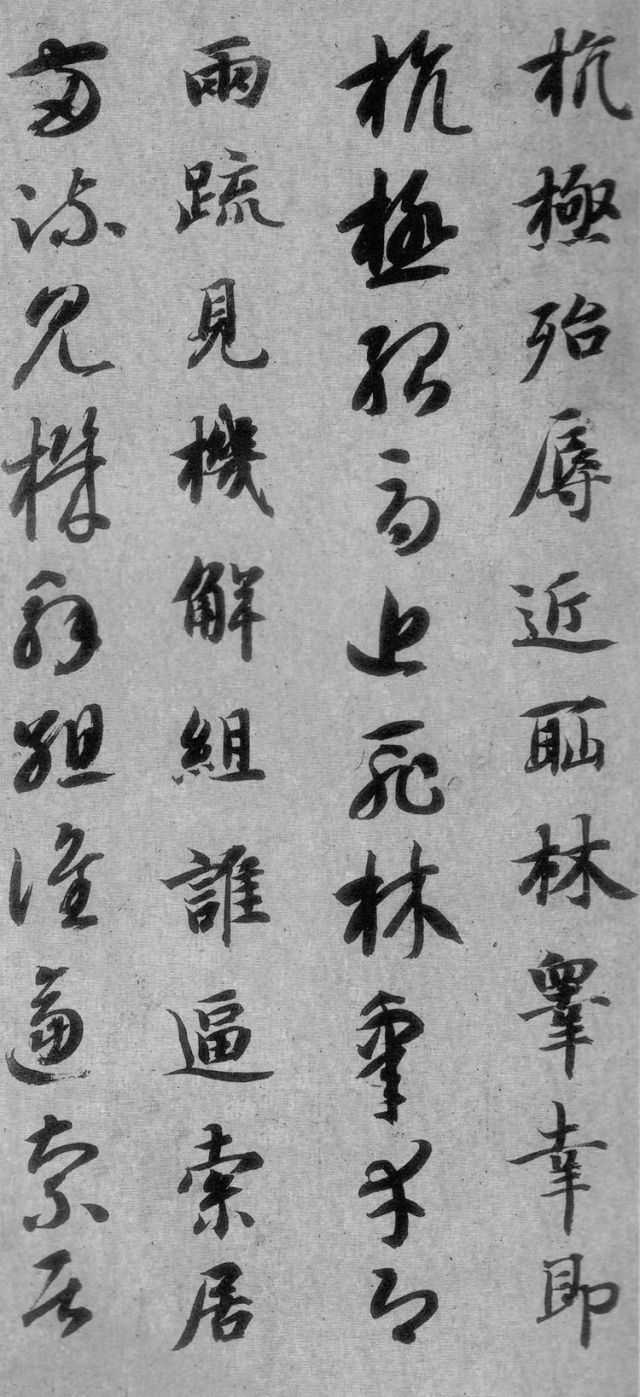 杭極殆辱近耻林皐幸即
杭極殆辱近耻林皐幸即
兩疏見機解組誰逼索居
兩疏見機解組誰逼索居